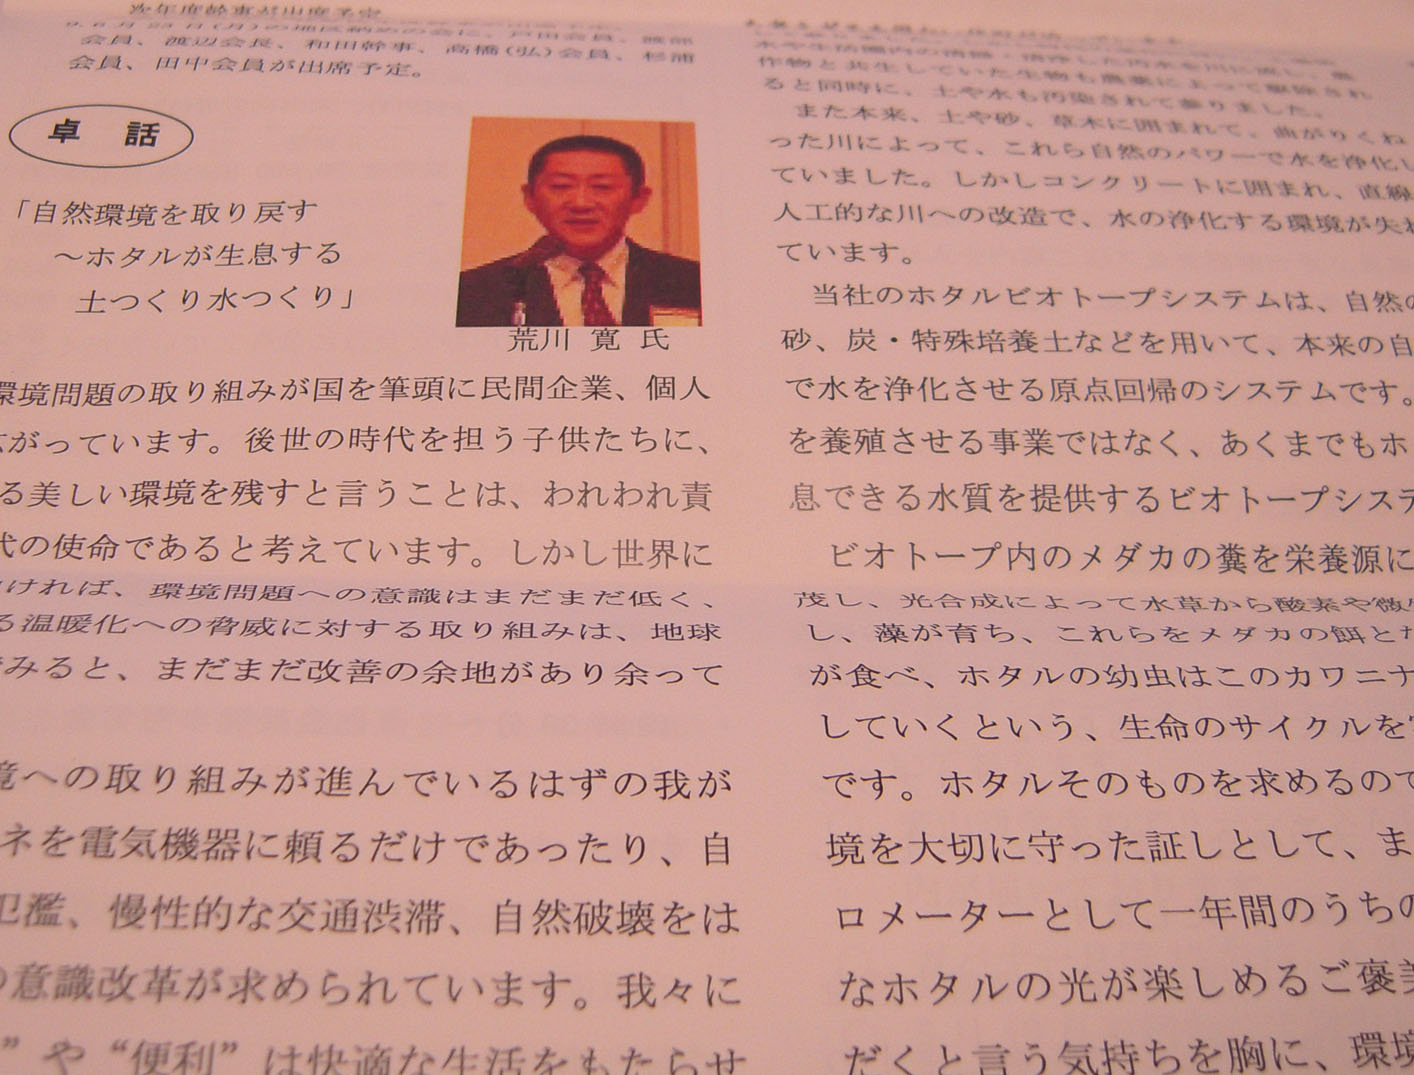 次年度幹事が出席予定
会員、渡辺会長、和田幹事、高橋(弘)会員、杉浦
会員、田中会員が出席予定。
卓 話
「自然環境を取り戻す
～ホタルが生息する
土つくり水つくり」
荒川 寛 氏
環境問題の取り組みが国を筆頭に民間企業、個人
がっています。後世の時代を担う子供たちに、
る美しい環境を残すと言うことは、われわれ責
代の使命であると考えています。しかし世界に
ければ、環境問題への意識はまだまだ低く、
る温暖化への脅威に対する取り組みは、地球
みると、まだまだ改善の余地があり余って
境への取り組みが進んでいるはずの我が
ネを電気機器に頼るだけであったり、自
氾濫、慢性的な交通渋滞、自然破壊をは
の意識改革が求められています。我々に
”や“便利”は快適な生活をもたらせ
作物と共生していた生物も農薬によって駆除され
ると同時に、土や水も汚染されて参りました。
また本来、土や砂、草木に囲まれて、曲がりくね
った川によって、これら自然のパワーで水を浄化し
ていました。しかしコンクリートに囲まれ、直線
人工的な川への改造で、水の浄化する環境が失わ
ています。
当社のホタルビオトープシステムは、自然の
砂、炭・特殊培養土などを用いて、本来の自
で水を浄化させる原点回帰のシステムです。
を養殖させる事業ではなく、あくまでもホ
息できる水質を提供するビオトープシステ
ビオトープ内のメダカの糞を栄養源に
茂し、光合成によって水草から酸素や微
し、藻が育ち、これらをメダカの餌とな
が食べ、ホタルの幼虫はこのカワニナ
していくという、生命のサイクルを
です。ホタルそのものを求めるので
境を大切に守った証しとして、ま
ロメーターとして一年間のうちの
なホタルの光が楽しめるご褒美
だくと言う気持ちを胸に、環境